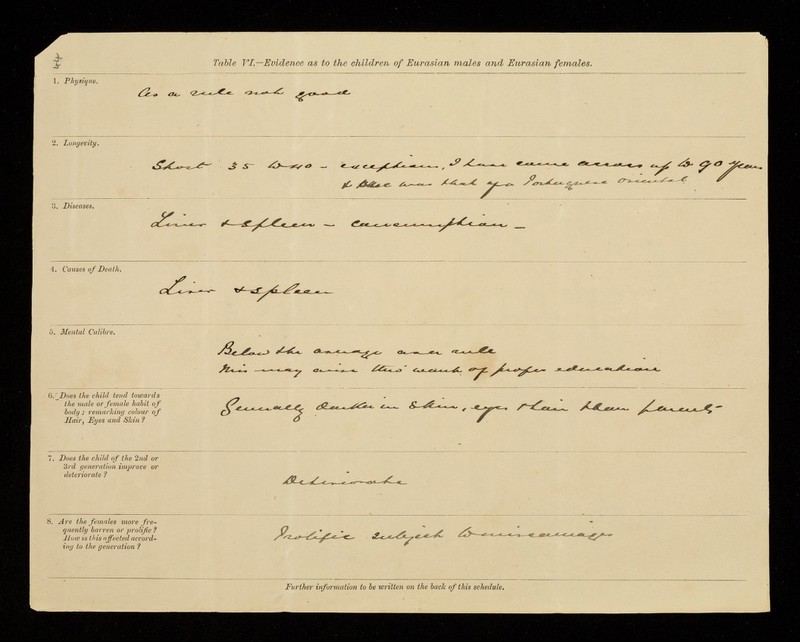 Table VI.—Evidence as to the children of Eurasian males and Eurasian females.
1. Physique.
As a rule not good
2. Longevity.
Short 35 to 40 – exceptions, I have come across up to 90 years
& was that of a Portuguese Oriental
3. Diseases.
Liver & Spleen – consumption –
4. Causes of Death.
Liver & Spleen
5. Mental Calibre.
Below the average as a rule
this may arise thro' want of proper education
6. Does the child tend towards
the male or female habit of
body; remarking colour of
Hair, Eyes and Skin?
Generally darker in Skin, eyes & hair than parents
7. Does the child of the 2nd or
3rd generation improve or
deteriorate?
Deteriorate
8. Are the females more fre-
quently barren or prolific?
How is this affected accord-
ing to the generation?
Prolific subject to miscarriages
Further information to be written on the back of this schedule.